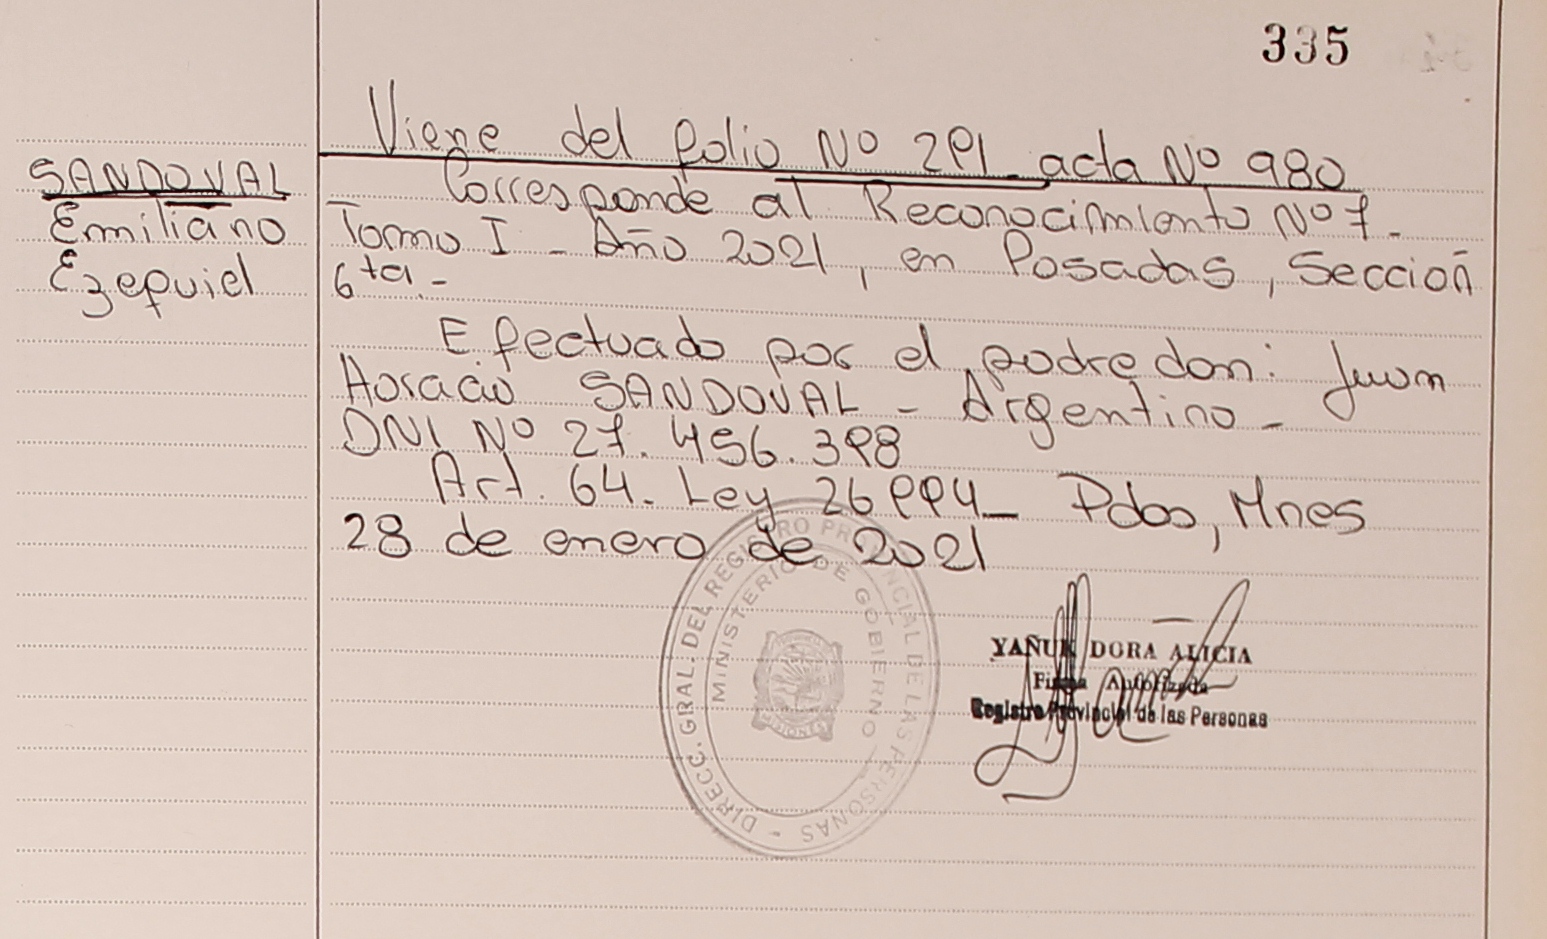 335
Viene del folio Nº 291 acta Nº 980
SANDOVAL
Emiliano
Ezequiel
Corresponde al Reconocimiento Nº 7.-
Tomo I - Año 2021, en Posadas, Sección
6ta.-
Efectuado por el padre don: Juan
Horacio SANDOVAL - Argentino -
DNI Nº 27.456.398
Art. 64. Ley 26994_ Pdas, Mnes
28 de enero de 2021
DIRECC. GRAL. DEL REGISTRO PROVINCIAL DE LAS PERSONAS -
MINISTERIO DE GOBIERNO
MISIONES
YAÑUK DORA ALICIA
Firma Autorizada
Registro Provincial de las Personas